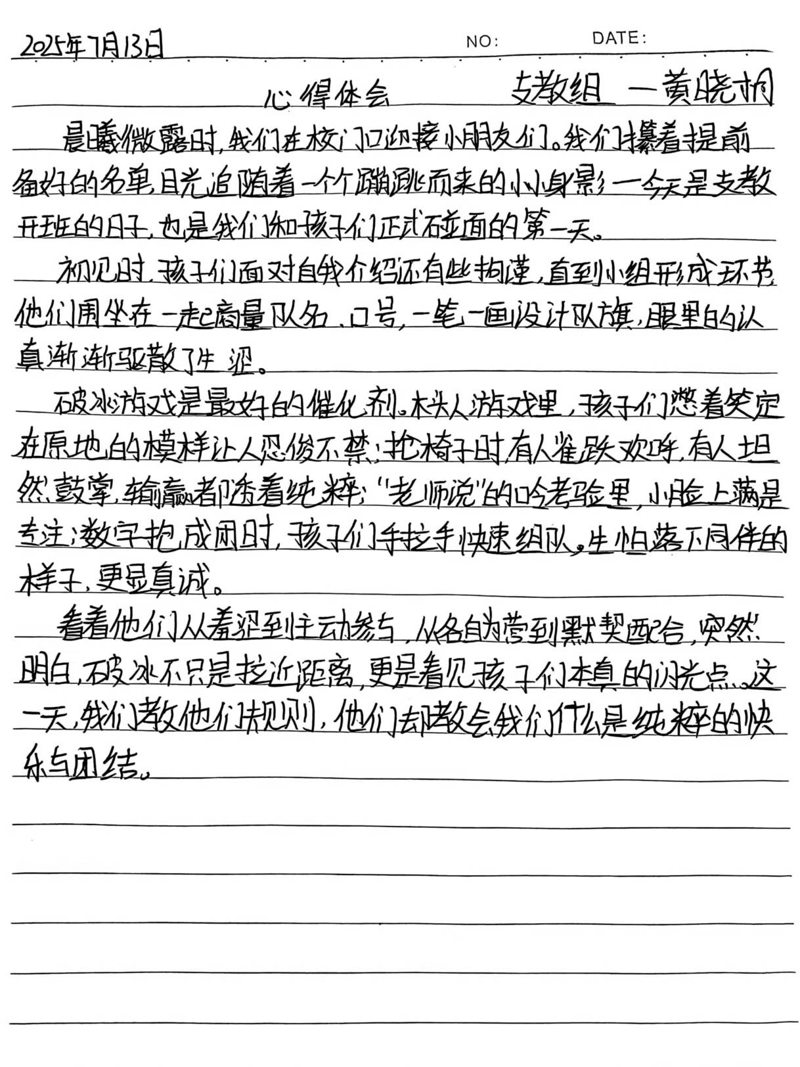 2025年7月13日
NO:
DATE:
心得体会
支教组 一黄晓桐
晨曦微露时,我们在校门口迎接小朋友们。我们攥着提前
备好的名单,目光追随着一个个蹦跳而来的小小身影一今天是支教
开班的日子,也是我们和孩子们正式碰面的第一天。
初见时,孩子们面对自我介绍还有些拘谨,直到小组形成环节,
他们围坐在一起商量队名、口号,一笔一画设计队旗,眼里的认
真渐渐驱散了生涩。
破冰游戏是最好的催化剂。木头人游戏里,孩子们憋着笑定
在原地的模样让人忍俊不禁;抢椅子时,有人雀跃欢呼,有人坦
然鼓掌,输赢都透着纯粹;“老师说”的口令考验里,小脸上满是
专注;数字抱成团时,孩子们手拉手快速组队。生怕落下同伴的
样子,更显真诚。
看着他们从羞涩到主动参与,从各自为营到默契配合,突然
明白,破冰不只是拉近距离,更是看见孩子们本真的闪光点。这
一天,我们教他们规则,他们却教会我们什么是纯粹的快
乐与团结。